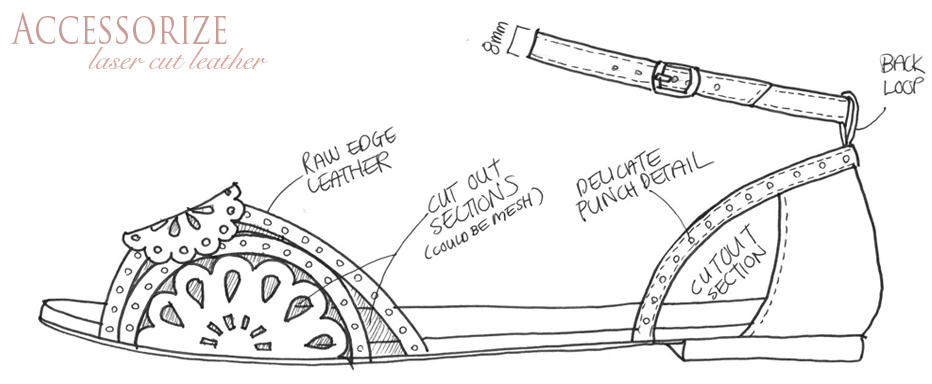 ACCESSORIZE
laser cut leather
8mm
BACK
LOOP
RAW EDGE
LEATHER
CUT OUT
SECTIONS
(COULD BE MESH)
DELICATE
PUNCH DETAIL
CUTOUT
SECTION